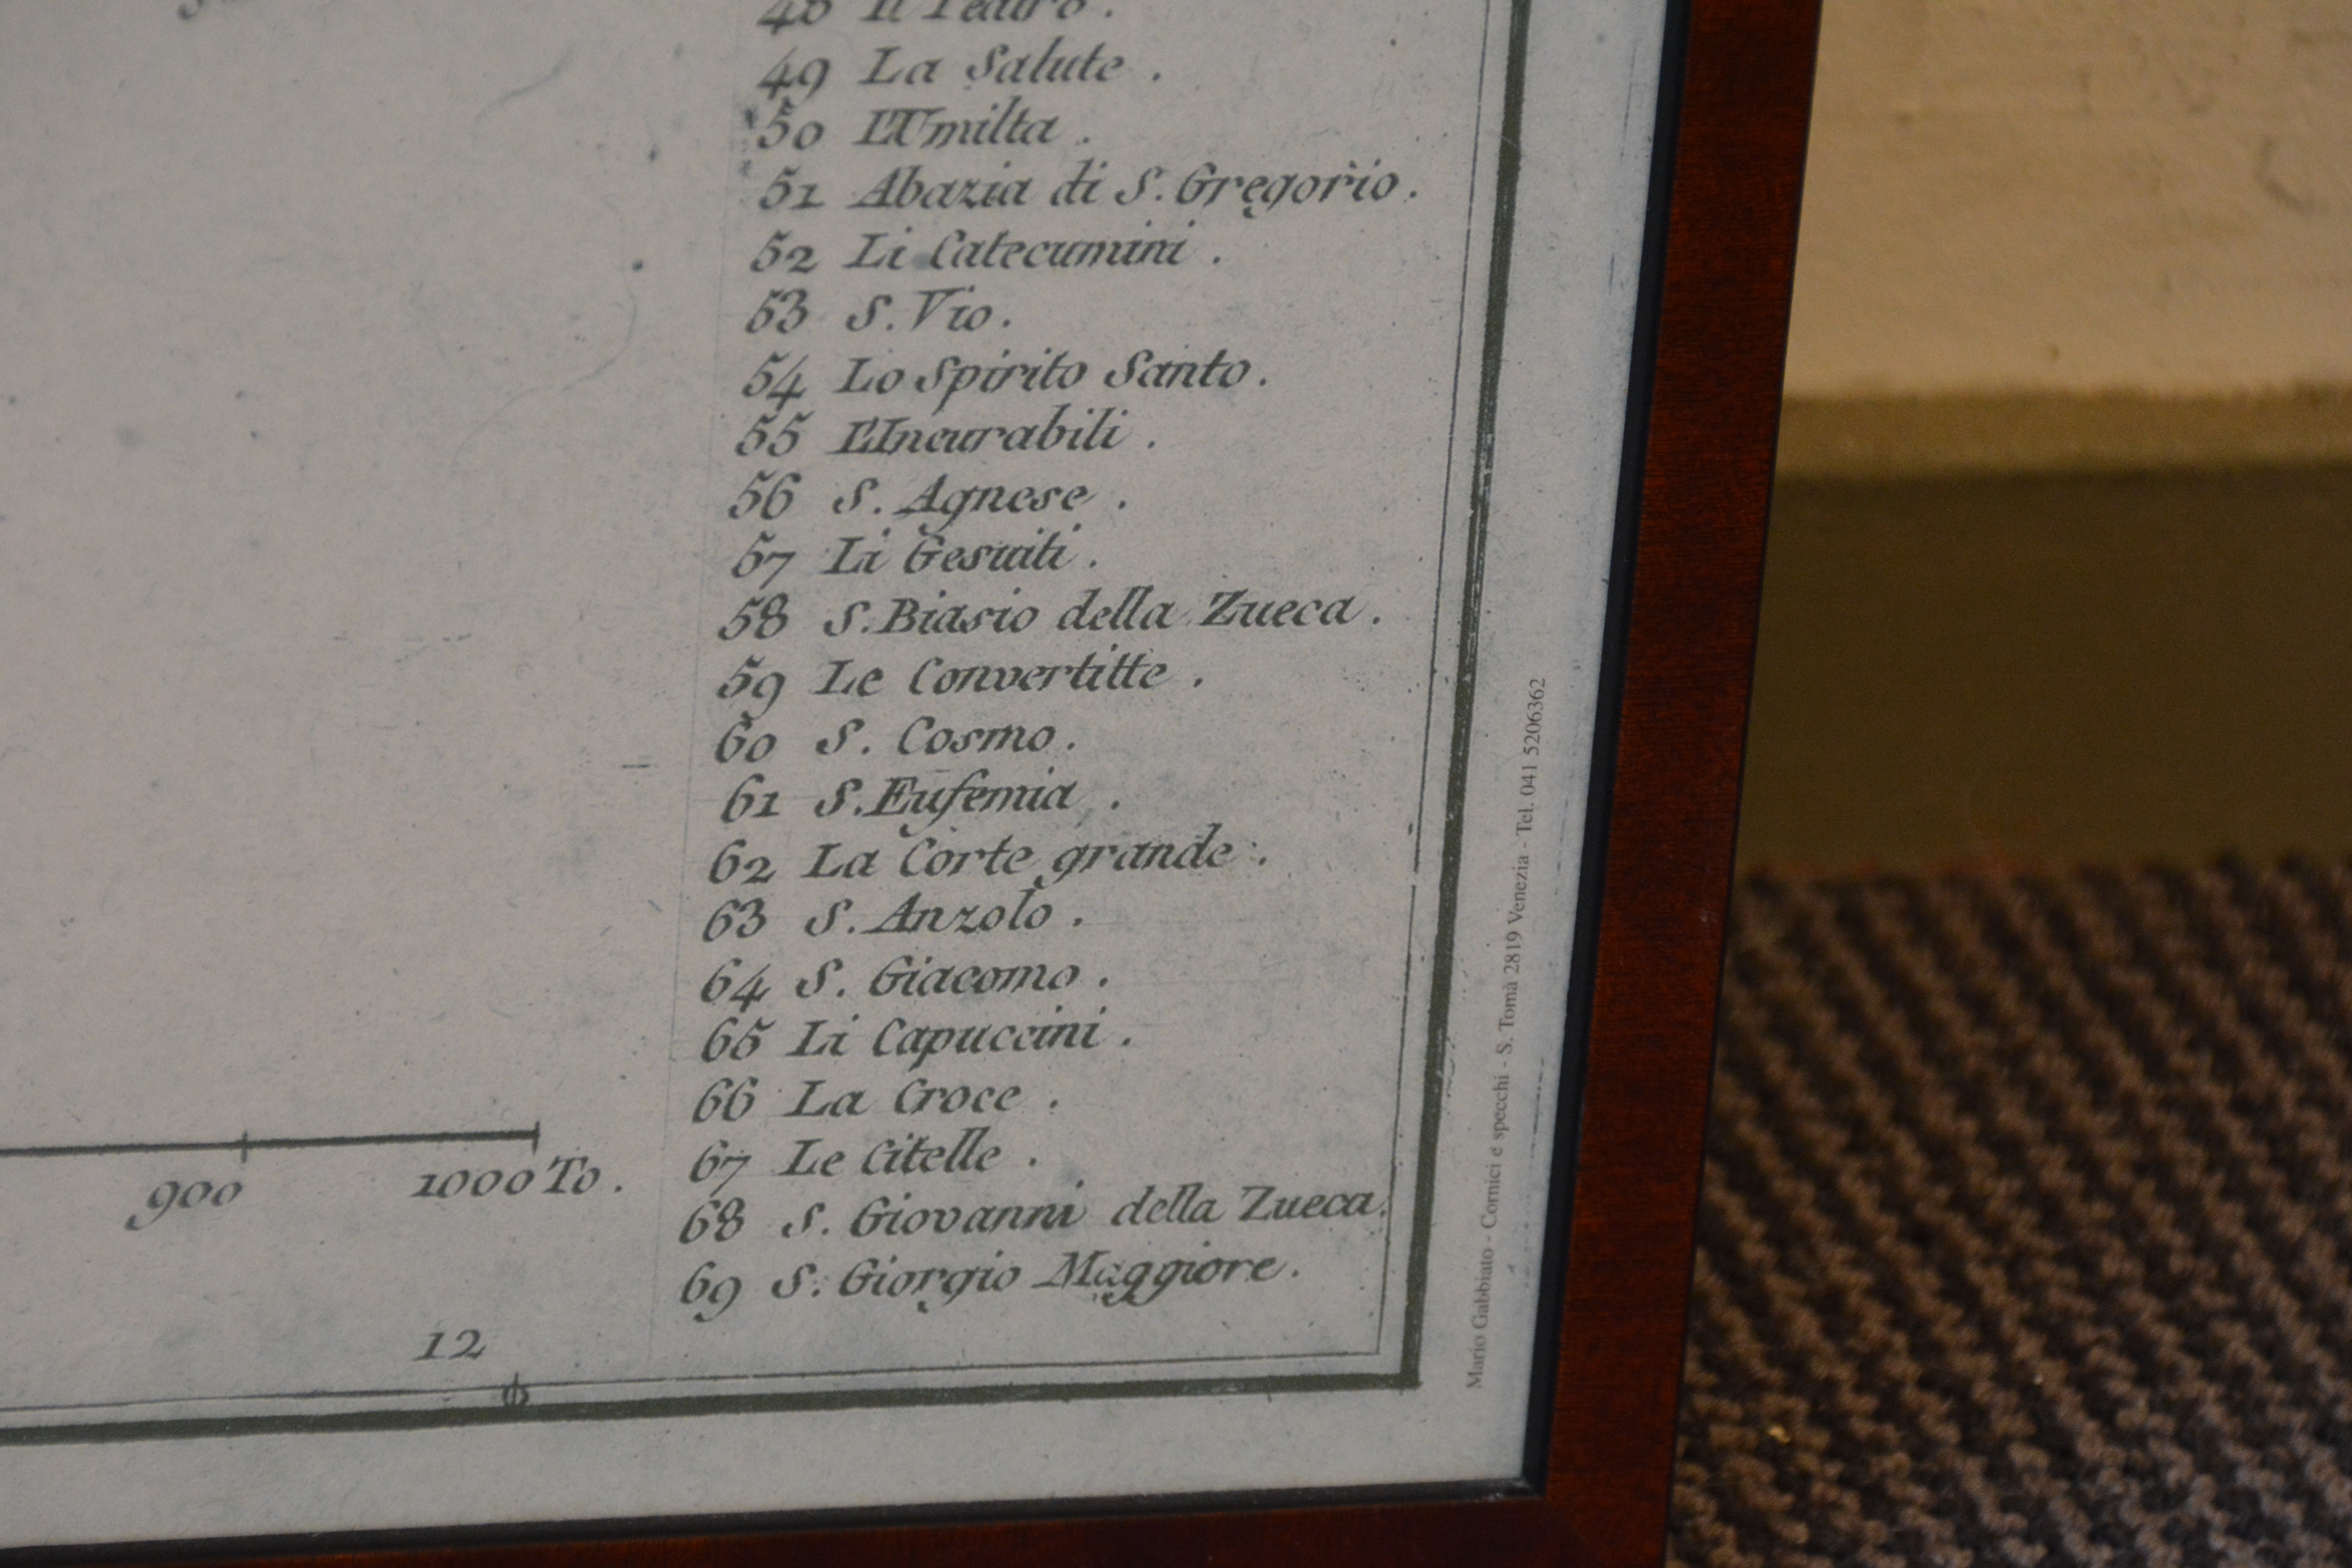 48 Il Teatro .
49 La Salute .
50 L'Umilta .
51 Abazia di S. Gregorio .
52 Li Catecumini .
53 S. Vio .
54 Lo Spirito Santo .
55 L'Incurabili .
56 S. Agnese .
57 Li Gesuiti .
58 S. Biasio della Zueca .
59 Le Convertitte .
60 S. Cosmo .
61 S. Eufemia .
62 La Corte grande .
63 S. Anzolo .
64 S. Giacomo .
65 Li Capuccini .
66 La Croce .
67 Le Citelle .
68 S. Giovanni della Zueca .
69 S. Giorgio Maggiore .
900 1000 To .
12
Mario Gabbiato - Cornici e specchi - S. Tomà 2819 Venezia - Tel. 041 5206362